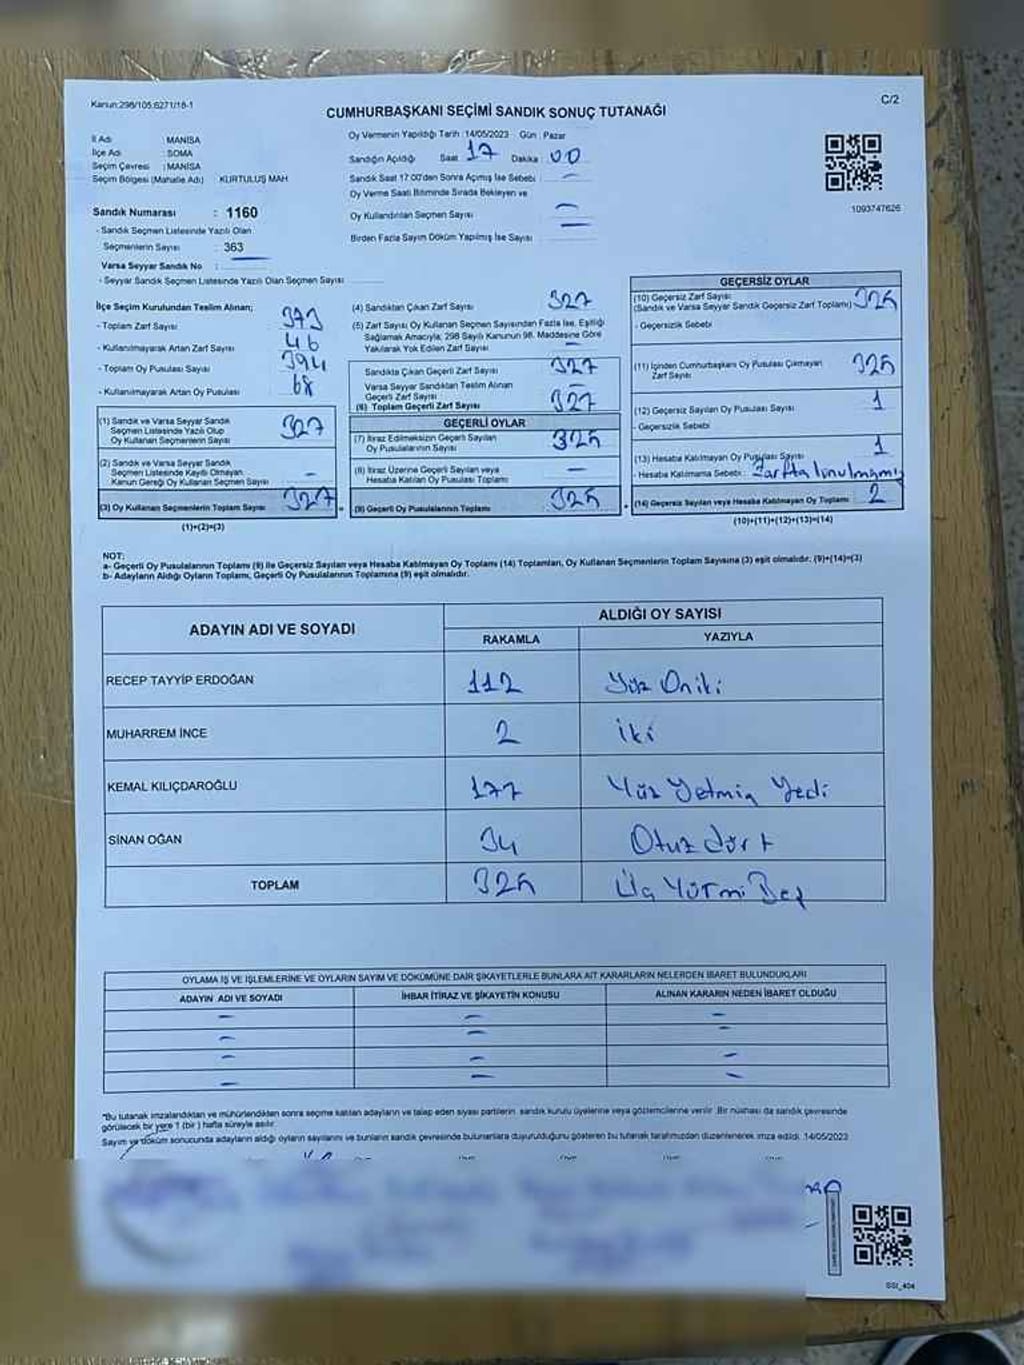 Kanun:298/105.6271/18-1
C/2
CUMHURBAŞKANI SEÇİMİ SANDIK SONUÇ TUTANAĞI
İl Adı : MANİSA
İlçe Adı : SOMA
Seçim Çevresi : MANİSA
Seçim Bölgesi (Mahalle Adı) KURTULUŞ MAH.
Sandık Numarası : 1160
- Sandık Seçmen Listesinde Yazılı Olan
Seçmenlerin Sayısı : 363
Varsa Seyyar Sandık No :
- Seyyar Sandık Seçmen Listesinde Yazılı Olan Seçmen Sayısı
Oy Vermenin Yapıldığı Tarih :14/05/2023 - Gün : Pazar
Sandığın Açıldığı Saat 17 Dakika : 00
Sandık Saat 17:00'den Sonra Açılmış İse Sebebi : —
Oy Verme Saati Bitiminde Sırada Bekleyen ve
Oy Kullandırılan Seçmen Sayısı —
Birden Fazla Sayım Döküm Yapılmış İse Sayısı —
1093747626
İlçe Seçim Kurulundan Teslim Alınan;
- Toplam Zarf Sayısı : 373
- Kullanılmayarak Artan Zarf Sayısı : 46
- Toplam Oy Pusulası Sayısı : 394
- Kullanılmayarak Artan Oy Pusulası : 68
(1) Sandık ve Varsa Seyyar Sandık
Seçmen Listesinde Yazılı Olup
Oy Kullanan Seçmenlerin Sayısı 327
(2) Sandık ve Varsa Seyyar Sandık
Seçmen Listesinde Kayıtlı Olmayan
Kanun Gereği Oy Kullanan Seçmen Sayısı —
(3) Oy Kullanan Seçmenlerin Toplam Sayısı 327
(1)+(2)=(3)
(4) Sandıktan Çıkan Zarf Sayısı 327
(5) Zarf Sayısı Oy Kullanan Seçmen Sayısından Fazla İse, Eşitliği
Sağlamak Amacıyla; 298 Sayılı Kanunun 98. Maddesine Göre
Yakılarak Yok Edilen Zarf Sayısı —
Sandıkta Çıkan Geçerli Zarf Sayısı 327
Varsa Seyyar Sandıktan Teslim Alınan
Geçerli Zarf Sayısı —
(6) Toplam Geçerli Zarf Sayısı 327
GEÇERLİ OYLAR
(7) İtiraz Edilmeksizin Geçerli Sayılan
Oy Pusulalarının Sayısı 325
(8) İtiraz Üzerine Geçerli Sayılan veya
Hesaba Katılan Oy Pusulası Toplamı —
(9) Geçerli Oy Pusulalarının Toplamı 325
GEÇERSİZ OYLAR
(10) Geçersiz Zarf Sayısı
(Sandık ve Varsa Seyyar Sandık Geçersiz Zarf Toplamı) 325
- Geçersizlik Sebebi
(11) İçinden Cumhurbaşkanı Oy Pusulası Çıkmayan
Zarf Sayısı 325
(12) Geçersiz Sayılan Oy Pusulası Sayısı 1
- Geçersizlik Sebebi
(13) Hesaba Katılmayan Oy Pusulası Sayısı 1
- Hesaba Katılmama Sebebi : Zarfta
(14) Geçersiz Sayılan veya Hesaba Katılmayan Oy Toplamı 2
(10)+(11)+(12)+(13)=(14)
NOT:
a- Geçerli Oy Pusulalarının Toplamı (9) ile Geçersiz Sayılan veya Hesaba Katılmayan Oy Toplamı (14) Toplamları, Oy Kullanan Seçmenlerin Toplam Sayısına (3) eşit olmalıdır. (9)+(14)=(3)
b- Adayların Aldığı Oyların Toplamı, Geçerli Oy Pusulalarının Toplamına (9) eşit olmalıdır.
ADAYIN ADI VE SOYADI
ALDIĞI OY SAYISI
RAKAMLA YAZIYLA
RECEP TAYYİP ERDOĞAN 112 Yüz Oniki
MUHARREM İNCE 2 iki
KEMAL KILIÇDAROĞLU 177 Yüz Yetmiş Yedi
SİNAN OĞAN 34 Otuz dört
TOPLAM 325 Üç Yürmi Beş
OYLAMA İŞ VE İŞLEMLERİNE VE OYLARIN SAYIM VE DÖKÜMÜNE DAİR ŞİKAYETLERLE BUNLARA AİT KARARLARIN NELERDEN İBARET BULUNDUKLARI
ADAYIN ADI VE SOYADI İHBAR İTİRAZ VE ŞİKAYETİN KONUSU ALINAN KARARIN NEDEN İBARET OLDUĞU
— — —
— — —
— — —
— — —
*Bu tutanak imzalandıktan ve mühürlendikten sonra seçime katılan adayların ve talep eden siyasi partilerin sandık kurulu üyelerine veya gözlemcilerine verilir. Bir nüshası da sandık çevresinde
görülecek bir yere 1 (bir) hafta süreyle asılır.
Sayım ve döküm sonucunda adayların aldığı oyların sayılarını ve bunların sandık çevresinde bulunanlara duyurulduğunu gösteren bu tutanak tarafımızdan düzenlenerek imza edildi. 14/05/2023
SSI_404